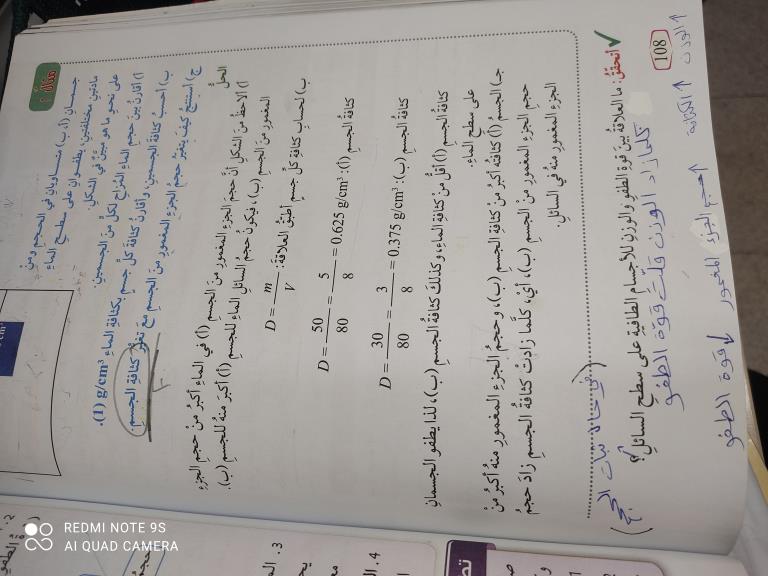 مثال 1
جسمان (أ، ب) متساويان في الحجم ومن
مادتين مختلفتين، يطفوان على سطح الماء
على نحو ما هو مبيّن في الشكل.
أ) أقارن بين حجم الماء المُزاح لكلٍّ من الجسمين.
ب) أحسبُ كثافة الجسمين، وأقارنُ كثافة كلّ جسمٍ بكثافة الماء (1) g/cm³.
ج) أستنتجُ كيف يتغيّر حجم الجزء المغمور من الجسم مع تغيّر كثافة الجسم.
الحلّ
أ) ألاحظ من الشكل أنّ حجم الجزء المغمور من الجسم (أ) في الماء أكبرُ من حجم الجزء
المغمور من الجسم (ب)، فيكون حجم السائل الماء للجسم (أ) أكبرَ منهُ للجسم (ب).
ب) لحساب كثافة كلّ جسمٍ أطبّق العلاقة:
D = m/V
كثافة الجسم (أ):
D = 50/80 = 5/8 = 0.625 g/cm³
كثافة الجسم (ب):
D = 30/80 = 3/8 = 0.375 g/cm³
كثافة الجسم (أ) أقلّ من كثافة الماء، وكذلك كثافة الجسم (ب)، لذا يطفو الجسمان
على سطح الماء.
ج) الجسم (أ) كثافته أكبرُ من كثافة الجسم (ب)، وحجم الجزء المغمور منهُ أكبرُ منْ
حجم الجزء المغمور من الجسم (ب)، أيْ، كلّما زادتْ كثافة الجسم زادَ حجمُ
الجزء المغمور منه في السائل.
✓ أتحقّقُ: ما العلاقة بين قوة الطفو والوزن للأجسام الطافية على سطح السائل؟
(في حالة ثبات الحجم)
108
كلما زاد الوزن قلت قوة الطفو
↑ الوزن ↑ الكثافة ↑ حجم الجزء المغمور ↓ قوة الطفو
3.
4.
2.
REDMI NOTE 9S
AI QUAD CAMERA